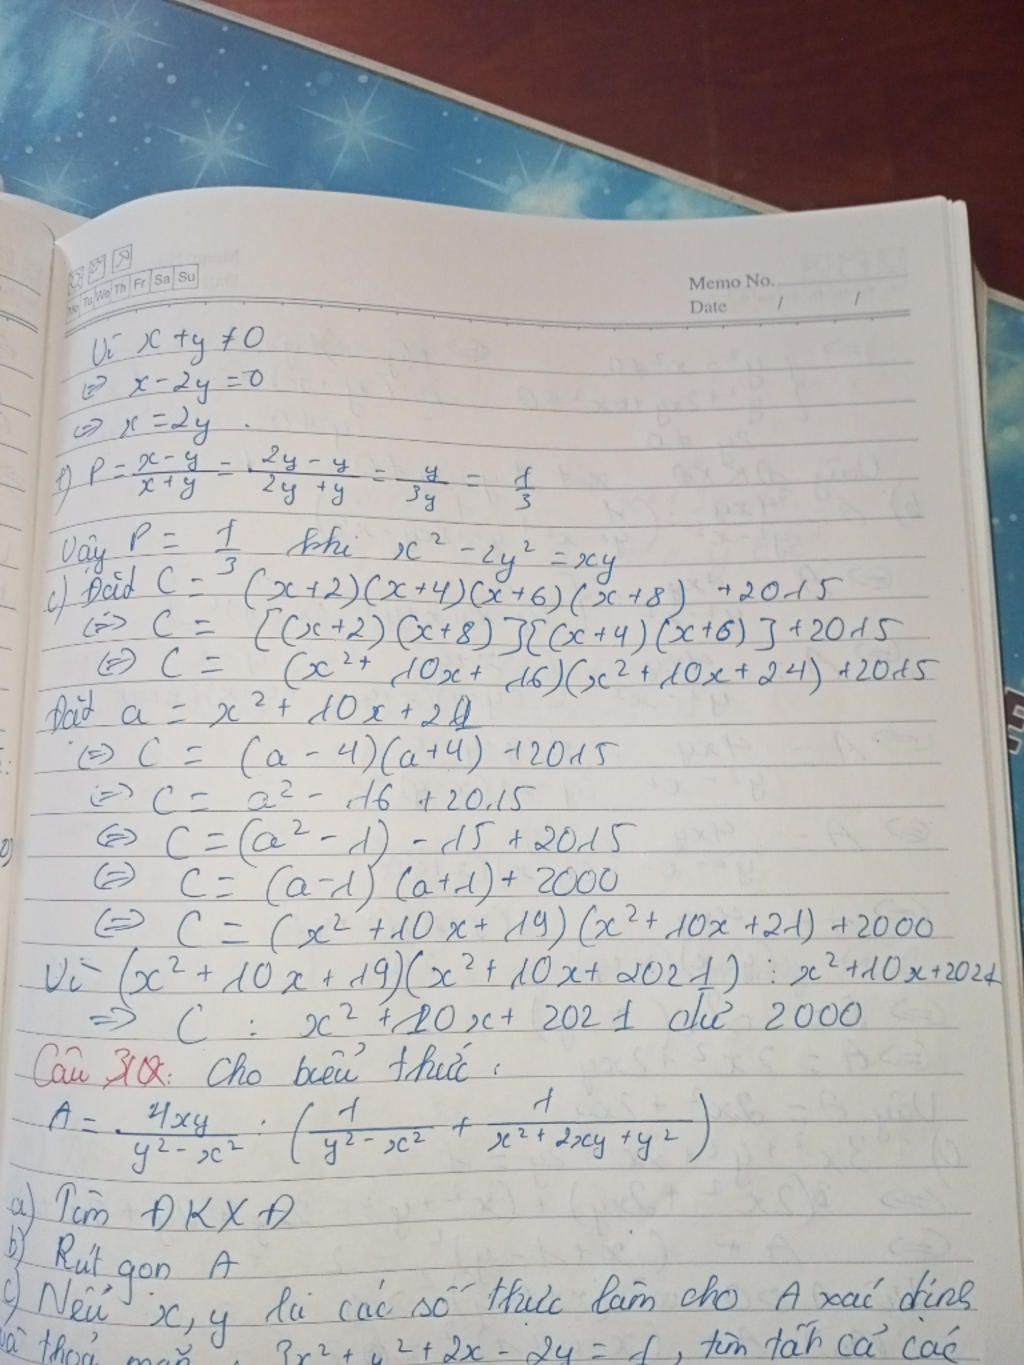 Mo Tu We Th Fr Sa Su
Memo No.
Date / /
Vì x + y ≠ 0
=> x - 2y = 0
=> x = 2y .
P = \frac{x-y}{x+y} = \frac{2y-y}{2y+y} = \frac{y}{3y} = \frac{1}{3}
Vậy P = \frac{1}{3} khi x² - 2y² = xy
c) Đặt C = (x+2)(x+4)(x+6)(x+8) + 2015
(=) C = [(x+2)(x+8)][(x+4)(x+6)] + 2015
(=) C = (x² + 10x + 16)(x² + 10x + 24) + 2015
Đặt a = x² + 10x + 20
(=) C = (a - 4)(a + 4) + 2015
(=) C = a² - 16 + 2015
(=) C = (a² - 1) - 15 + 2015
(=) C = (a-1)(a+1) + 2000
(=) C = (x² + 10x + 19)(x² + 10x + 21) + 2000
Vì (x² + 10x + 19)(x² + 10x + 2021) : x² + 10x + 2021
=> C : x² + 10x + 2021 dư 2000
Câu : Cho biểu thức :
A = \frac{4xy}{y² - x²} : (\frac{1}{y² - x²} + \frac{1}{x² + 2xy + y²})
a) Tìm ĐKXĐ
b) Rút gọn A
c) Nếu x, y là các số thực làm cho A xác định
và thoả mãn : 3x² + y² + 2x - 2y = 1, tìm tất cả các